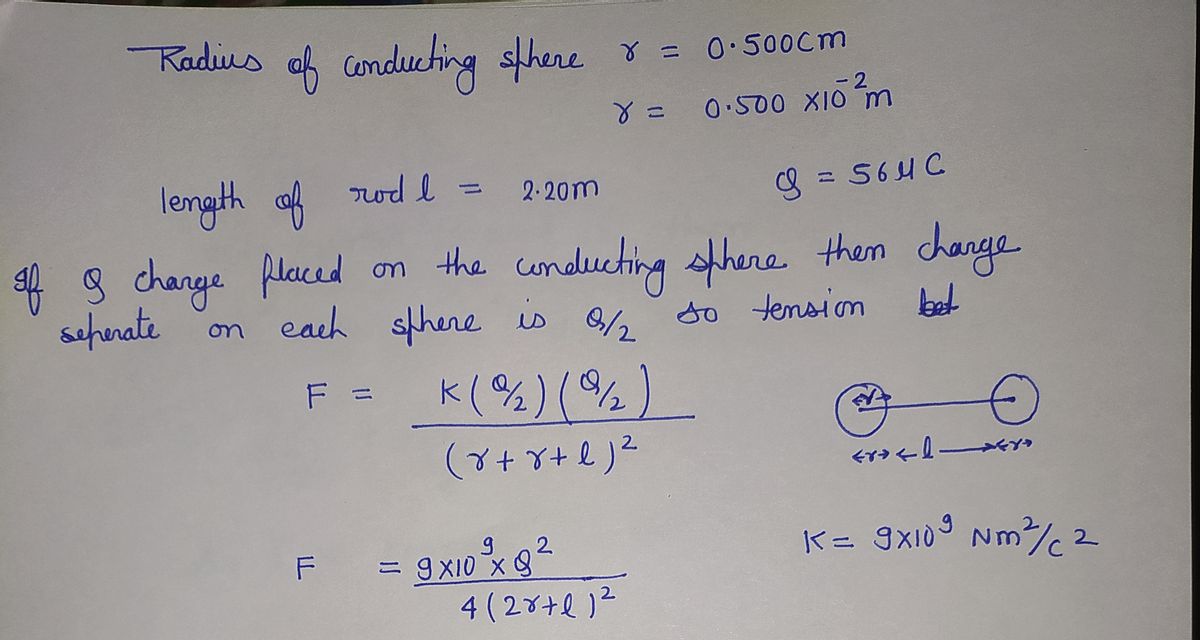 Radius of conducting sphere r = 0.500cm
r = 0.500 x10⁻²m
length of rod l = 2.20m Q = 56μC
If Q charge placed on the conducting sphere then charge
seperate on each sphere is Q/2 so tension bet
F = K(Q/2)(Q/2)
(r+r+l)²
r
r l r
F = 9x10⁹xQ²
4(2r+l)²
K= 9x10⁹ Nm²/c2